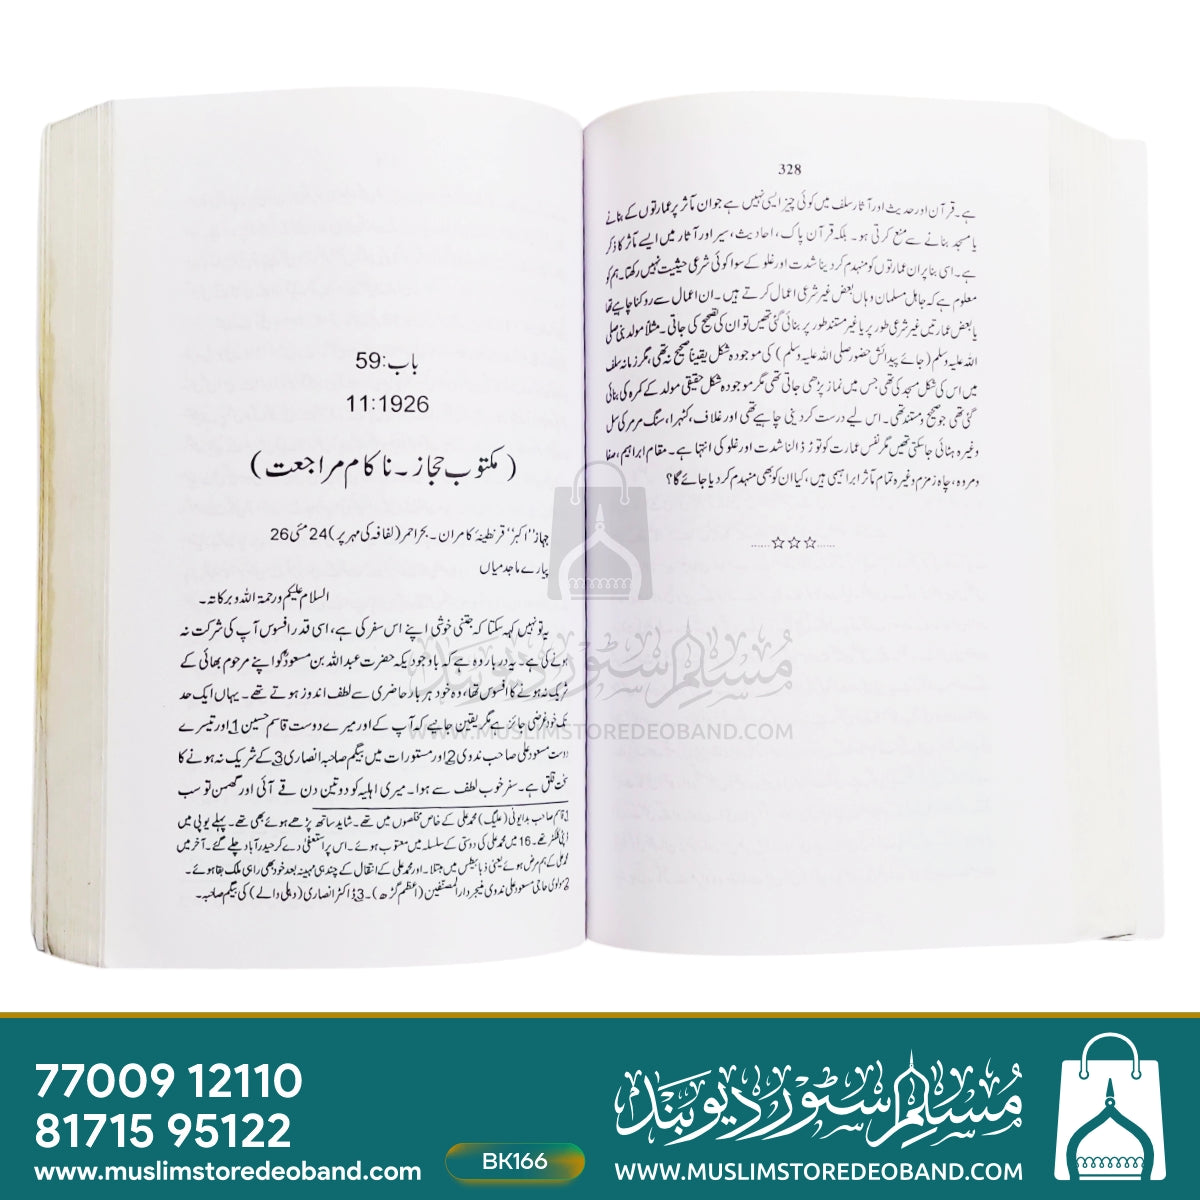 328
ہے۔ قرآن اور حدیث اور آثار سلف میں کوئی چیز ایسی نہیں ہے جو ان مآثر پر عمارتوں کے بنانے
یا مسجد بنانے سے منع کرتی ہو۔ بلکہ قرآن پاک، احادیث، سیر اور آثار میں ایسے مآثر کا ذکر
ہے۔ اسی بنا پر ان عمارتوں کو منہدم کر دینا شدت اور غلو کے سوا کوئی شرعی حیثیت نہیں رکھتا۔ ہم کو
معلوم ہے کہ جاہل مسلمان وہاں بعض غیر شرعی اعمال کرتے ہیں۔ ان اعمال سے روکنا چاہیے تھا
یا بعض عمارتیں غیر شرعی طور پر یا غیر مستند طور پر بنائی گئی تھیں تو ان کی تصحیح کی جاتی۔ مثلاً مولد نبی صلی
اللہ علیہ وسلم (جائے پیدائش حضور صلی اللہ علیہ وسلم) کی موجودہ شکل یقیناً صحیح نہ تھی، مگر زمانہ سلف
میں اس کی شکل مسجد کی تھی جس میں نماز پڑھی جاتی تھی مگر موجودہ شکل حقیقی مولد کے کمرہ کی بنائی
گئی تھی جو صحیح و مستند تھی۔ اس لیے درست کر دینی چاہیے تھی اور غلاف، کٹہرا، سنگ مرمر کی سل
وغیرہ ہٹائی جا سکتی تھیں مگر نفس عمارت کو توڑ ڈالنا شدت اور غلو کی انتہا ہے۔ مقام ابراہیم، صفا
و مروہ، چاہ زمزم وغیرہ تمام مآثر ابراہیمی ہیں، کیا ان کو بھی منہدم کر دیا جائے گا؟
......☆☆☆......
باب:59
11:1926
(مکتوب حجاز۔ ناکام مراجعت)
جہاز "اکبر" قرنطینۂ کامران۔ بحر احمر (لفافہ کی مہر پر) 24 مئی 26
پیارے ماجد میاں
السلام علیکم ورحمۃ اللہ وبرکاتہ۔
یہ تو نہیں کہہ سکتا کہ جتنی خوشی اپنے اس سفر کی ہے، اسی قدر افسوس آپ کی شرکت نہ
ہونے کی ہے۔ یہ دربار وہ ہے کہ باوجودیکہ حضرت عبداللہ بن مسعودؓ کو اپنے مرحوم بھائی کے
شریک نہ ہونے کا افسوس تھا، وہ خود ہر بار حاضری سے لطف اندوز ہوتے تھے۔ یہاں ایک حد
تک خود غرضی جائز ہے مگر یقین جانیے کہ آپ کے اور میرے دوست قاسم حسین 1 اور تیسرے
دوست مسعود علی صاحب ندوی 2 اور مستورات میں بیگم صاحبہ انصاری 3 کے شریک نہ ہونے کا
سخت قلق ہے۔ سفر خوب لطف سے ہوا۔ میری اہلیہ کو دو تین دن قے آئی اور گھمن تو سب
1 قاسم صاحب بدایونی (علیگ) محمد علی کے خاص مخلصوں میں تھے۔ شاید ساتھ پڑھے ہوئے بھی تھے۔ پہلے یو پی میں
ڈپٹی کلکٹر تھے۔ 16 میں محمد علی کی دوستی کے سلسلہ میں معتوب ہوئے۔ اس پر استعفیٰ دے کر حیدرآباد چلے گئے۔ آخر میں
محمد علی کے ہم مرض ہوئے یعنی ذیابیطس میں مبتلا۔ اور محمد علی کے انتقال کے چند ہی مہینہ بعد خود بھی راہی ملک بقا ہوئے۔
2 مولوی حاجی مسعود علی ندوی منیجر دارالمصنفین (اعظم گڑھ)۔ 3 ڈاکٹر انصاری (دہلی والے) کی بیگم صاحبہ۔
مسلم سٹور دیوبند
WWW.MUSLIMSTOREDEOBAND.COM
77009 12110
81715 95122
www.muslimstoredeoband.com
BK166
مسلم سٹور دیوبند
WWW.MUSLIMSTOREDEOBAND.COM